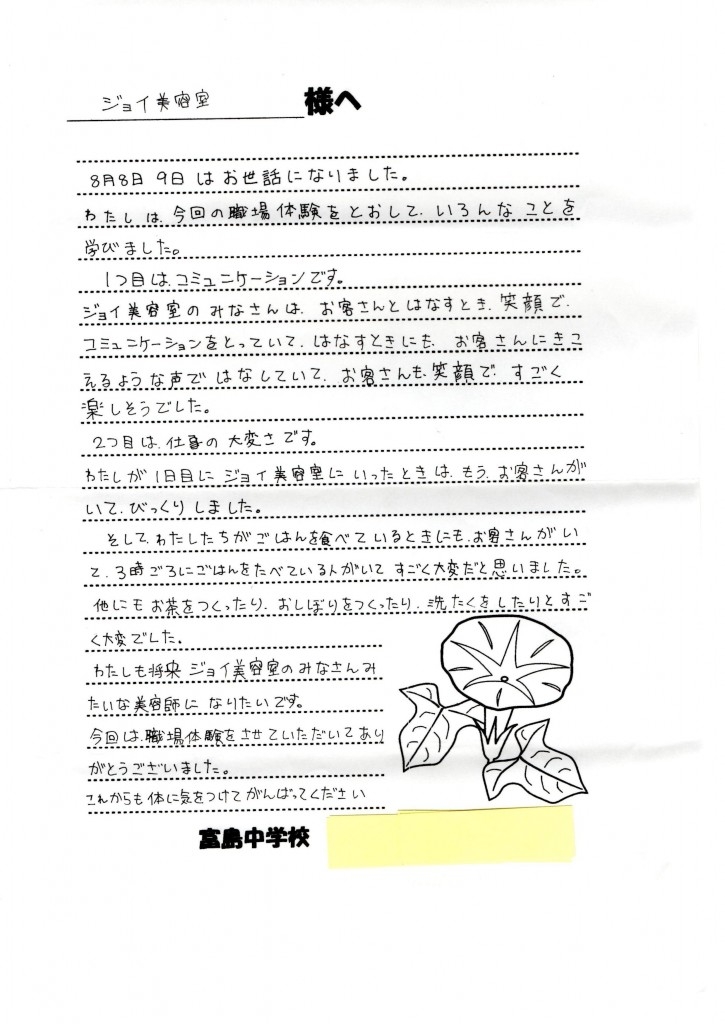 ジョイ美容室 様へ
8月8日 9日 はお世話になりました。
わたしは、今回の職場体験をとおして、いろんなことを
学びました。
1つ目は、コミュニケーションです。
ジョイ美容室のみなさんは、お客さんとはなすとき、笑顔で、
コミュニケーションをとっていて、はなすときにも、お客さんにきこ
えるような声ではなしていて、お客さんも、笑顔で、すごく
楽しそうでした。
2つ目は、仕事の大変さです。
わたしが1日目にジョイ美容室にいったときは、もう、お客さんが
いて、びっくりしました。
そして、わたしたちがごはんを食べているときにも、お客さんがい
て、3時ごろにごはんをたべている人がいてすごく大変だと思いました。
他にもお茶をつくったり、おしぼりをつくったり、洗たくをしたりとすご
く大変でした。
わたしも将来ジョイ美容室のみなさんみ
たいな美容師になりたいです。
今回は、職場体験をさせていただいてあり
がとうございました。
これからも体に気をつけてがんばってください
富島中学校